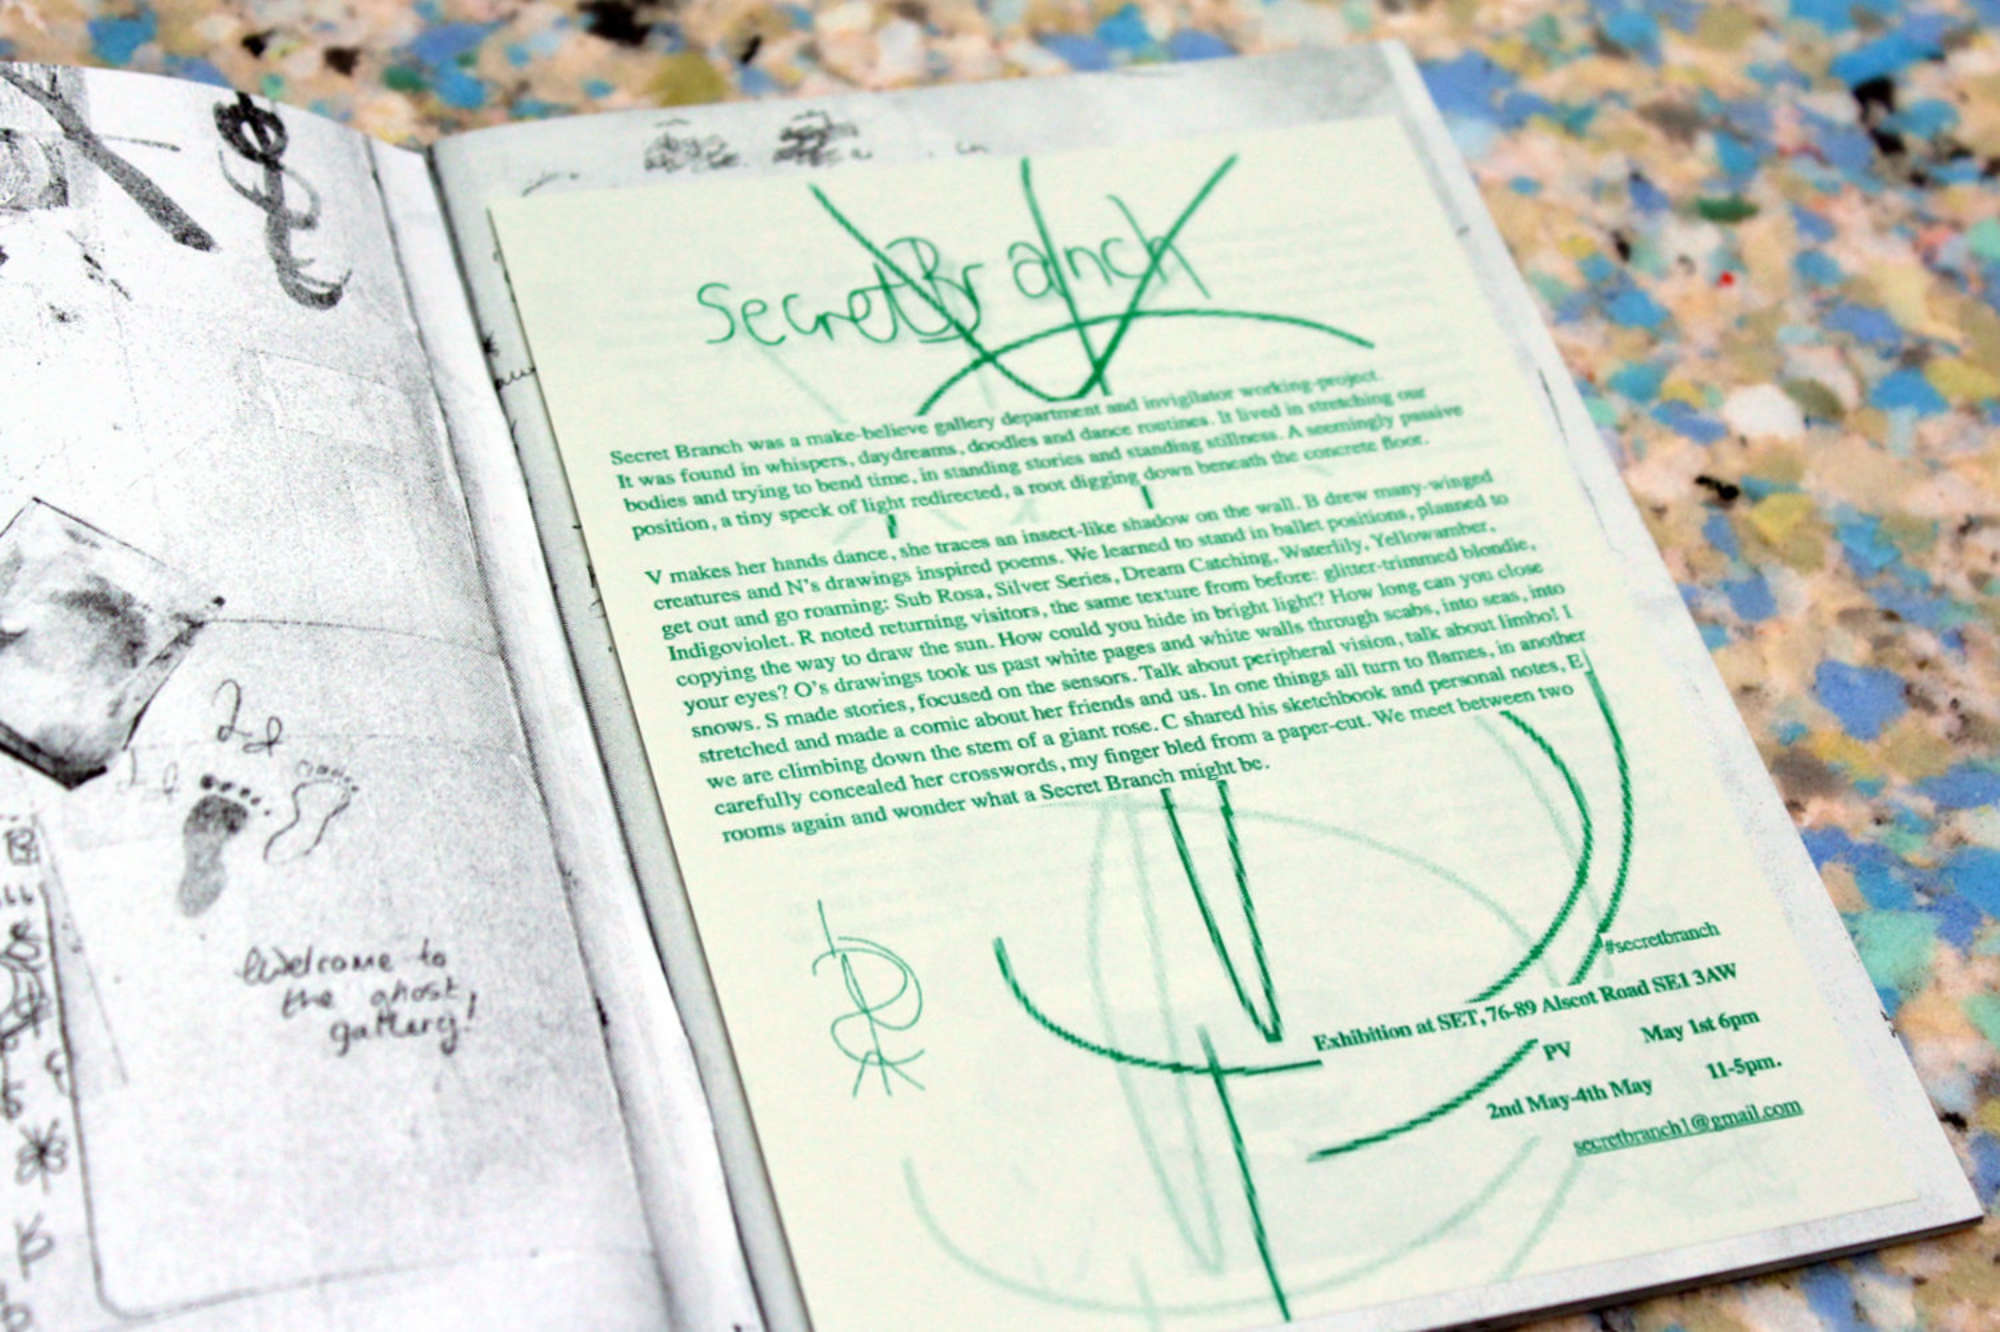 Welcome to
the ghost
gallery!
Secret Branch
Secret Branch was a make-believe gallery department and invigilator working-project.
It was found in whispers, daydreams, doodles and dance routines. It lived in stretching our
bodies and trying to bend time, in standing stories and standing stillness. A seemingly passive
position, a tiny speck of light redirected, a root digging down beneath the concrete floor.
V makes her hands dance, she traces an insect-like shadow on the wall. B drew many-winged
creatures and N's drawings inspired poems. We learned to stand in ballet positions, planned to
get out and go roaming: Sub Rosa, Silver Series, Dream Catching, Waterlily, Yellowamber,
Indigoviolet. R noted returning visitors, the same texture from before: glitter-trimmed blondie,
copying the way to draw the sun. How could you hide in bright light? How long can you close
your eyes? O's drawings took us past white pages and white walls through scabs, into seas, into
snows. S made stories, focused on the sensors. Talk about peripheral vision, talk about limbo! I
stretched and made a comic about her friends and us. In one things all turn to flames, in another
we are climbing down the stem of a giant rose. C shared his sketchbook and personal notes, E
carefully concealed her crosswords, my finger bled from a paper-cut. We meet between two
rooms again and wonder what a Secret Branch might be.
#secretbranch
Exhibition at SET, 76-89 Alscot Road SE1 3AW
PV May 1st 6pm
2nd May-4th May 11-5pm.
secretbranch1@gmail.com